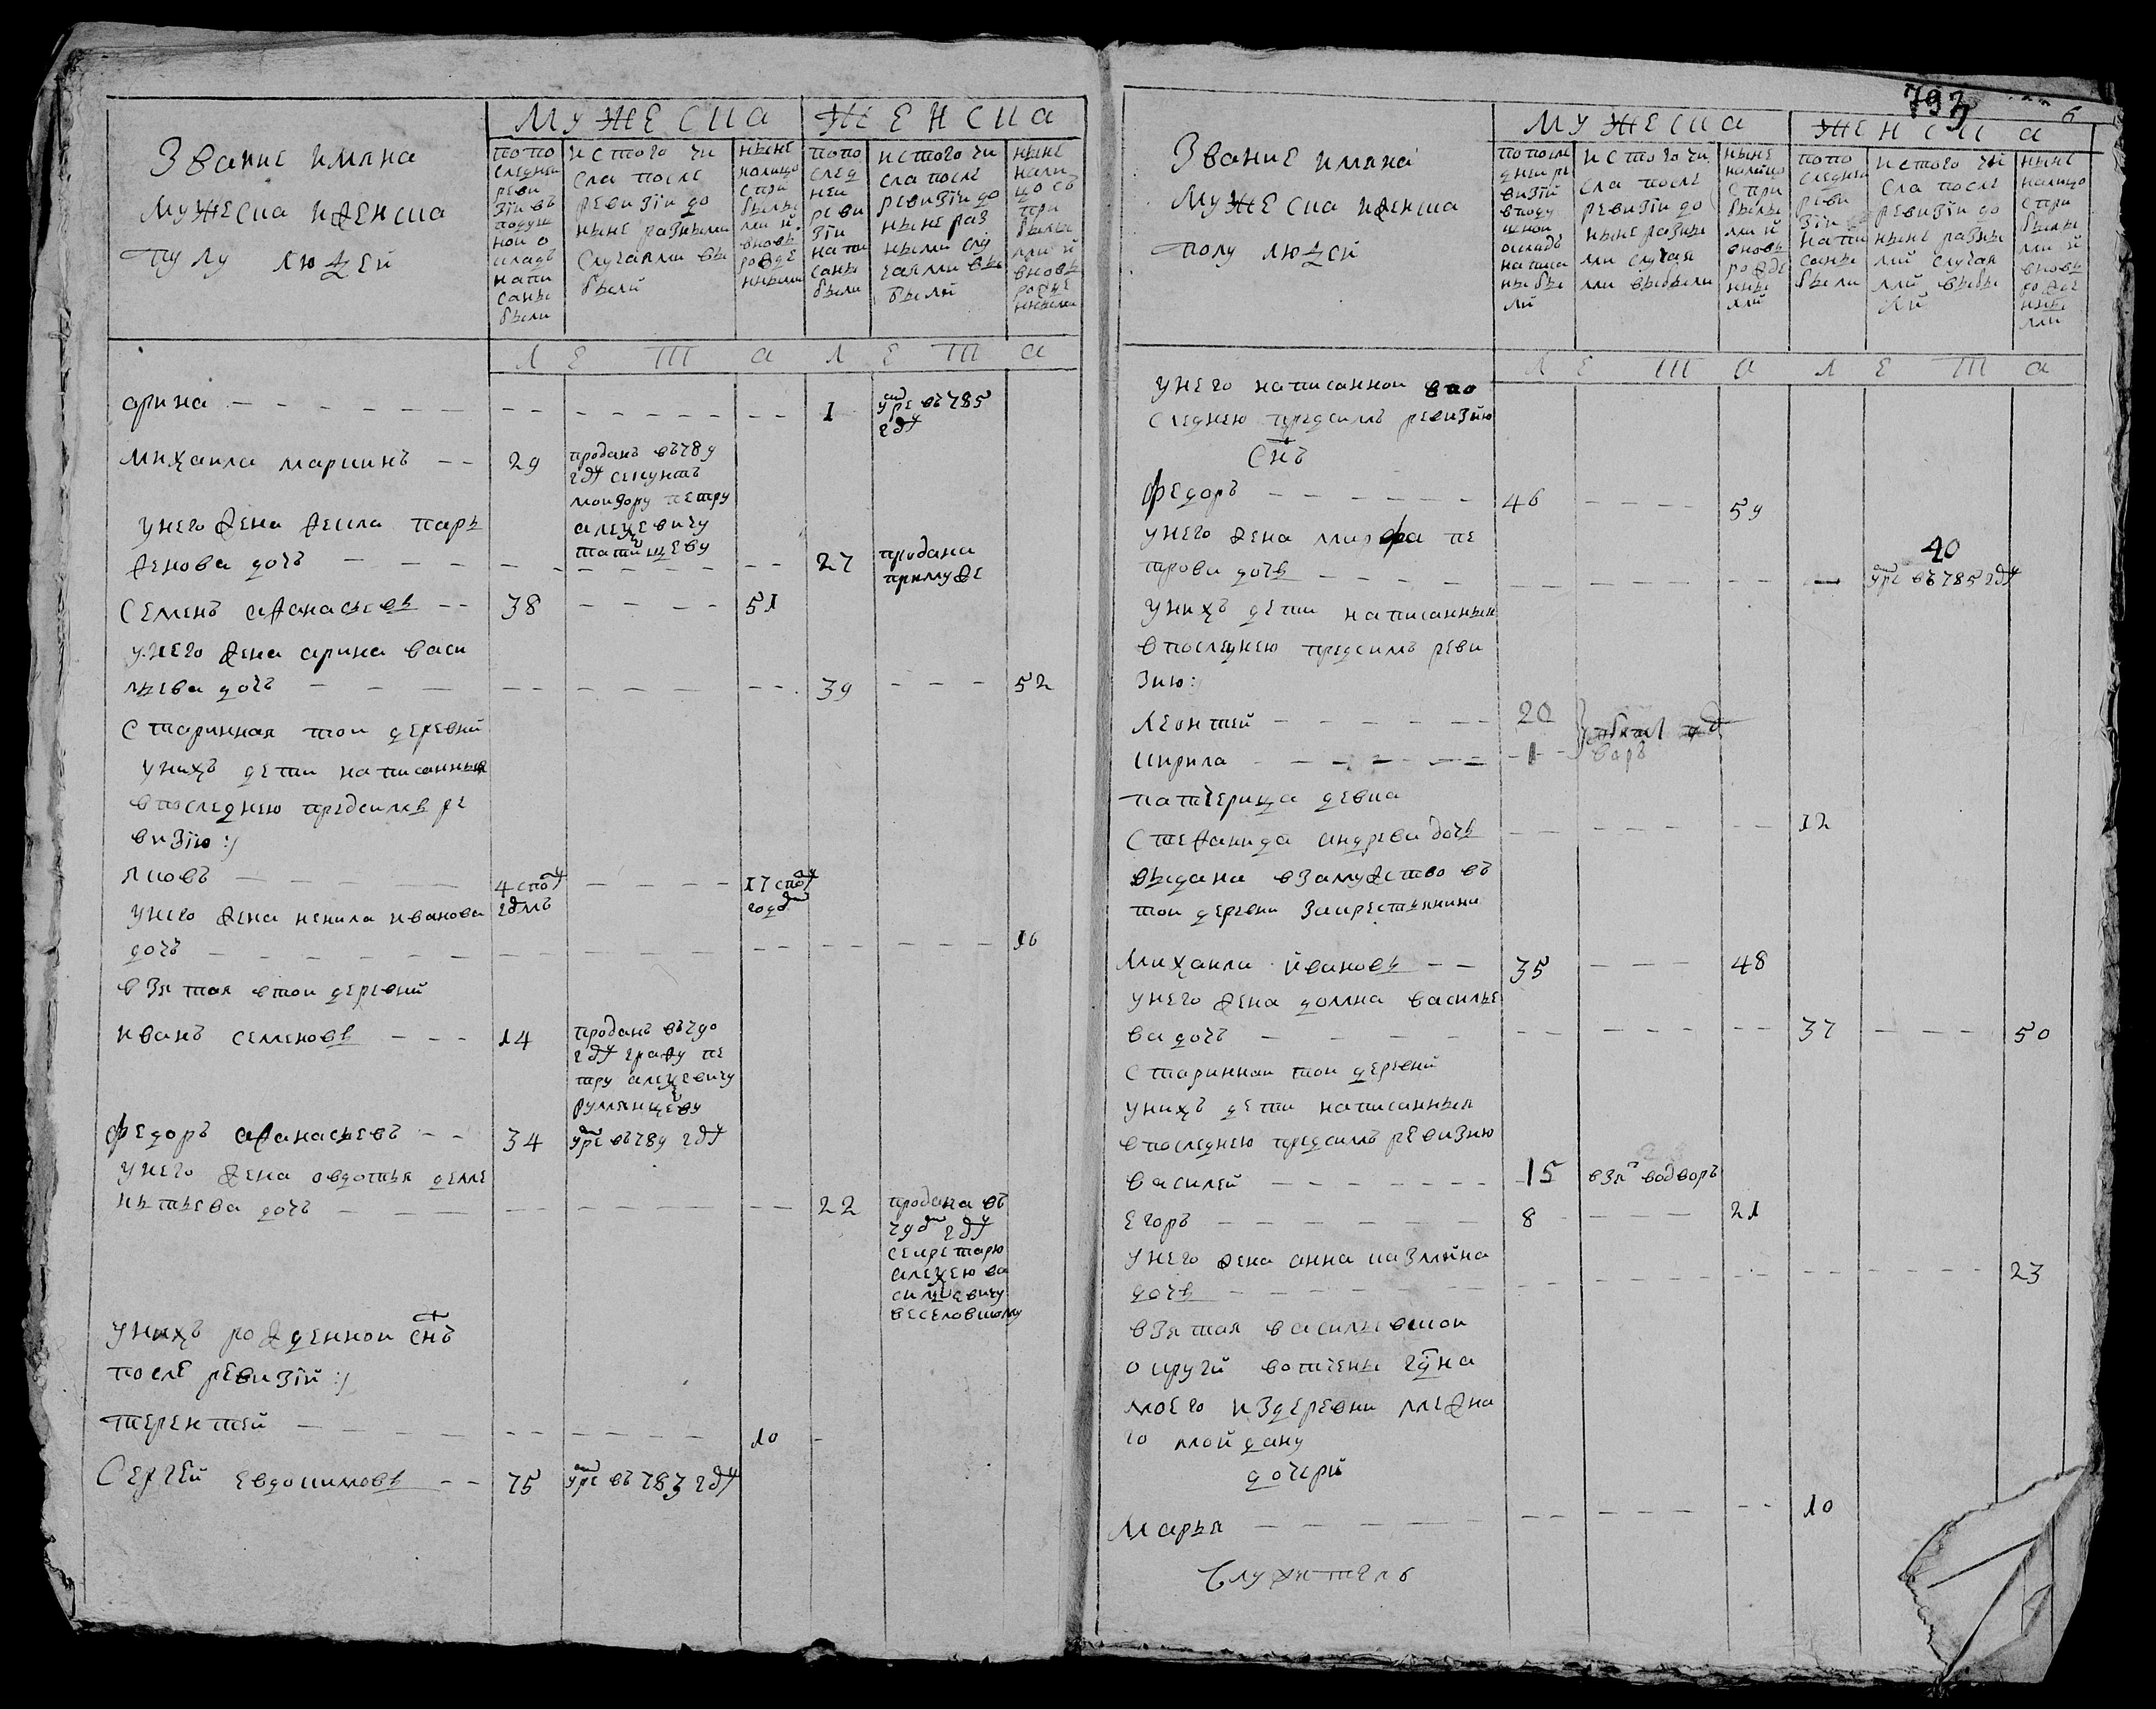 Звание имяна
мужеска иженска
полу людей
мужеска
женска
попо
следней
реви
зїи въ
подуш
ной о
кладъ
напи
саны
были
истого чи
сла после
ревизїи до
ныне разными
случаями вы
были
ныне
налицо
спри
былы
ми и
вновь
рожде
нными
попо
след
ней
реви
зїи
напи
саны
были
истого чи
сла после
ревизїи до
ныне раз
ными слу
чаями вы
были
ныне
нали
цо съ
при
былы
ми и
вновь
рожде
нными
лета лета
арина 1 умре въ 785
году
михаила маркинъ 29 проданъ въ789
году секунтъ
маиору петру
алеѯевичу
татищеву
унего жена фекла парѳ
ѳенова дочь 27 продана
примуже
семенъ аѳанасьевъ 38 51
унего жена арина васи
льева дочь 39 52
старинная той деревни
унихъ дети написанныя
впоследнею предсимъ ре
визїю:/
яковъ 4 спол
годмъ 17 спол
года
унего жена ненила иванова
дочь 16
взятая втой деревни
иванъ семеновъ 14 проданъ въ790
году граѳу пе
тру алеѯевичу
румянцеву
федоръ аѳанасьевъ 34 умре въ789 году
унего жена овдотья деме
нтьева дочь 22 продана въ
79д году
секретарю
алеѯею ва
сильевичу
веселовскому
унихъ рожденной снъ
после ревизїи:/
терентей 10
Сергей евдокимовъ 75 умре въ783 году
793
6
Звание имяна
мужеска иженска
полу людей
мужеска
женска
попосле
дней ре
визїи
вподу
шной
окладъ
написа
ны бы
ли
истого чи
сла после
ревизїи до
ныне разны
ми случая
ми выбыли
ныне
налицо
спри
былы
ми и
вновь
рожде
нны
ми
попо
следней
реви
зїи
напи
саны
были
истого чи
сла после
ревизїи до
ныне разны
ми случая
ми выбы
ли
ныне
налицо
спри
былы
ми и
вновь
рожде
нны
ми
лета лета
унего написанной впо
следнею предсимъ ревизїю
снъ
федоръ 46 59
унего жена марфа пе
трова дочь 40
умре въ785 году
унихъ дети написанныя
впоследнею предсимъ реви
зию:/
леонтей 20
кирила 1
патчерица девка
стеѳанида андреева дочь 12
выдана взамужство въ
той деревни закрестьянина
михаила ивановъ 35 48
унего жена домна василье
ва дочь 37 50
старинная той деревни
унихъ дети написанныя
впоследнею предсимъ ревизию
василей 15 взят водворъ
егоръ 8 21
унего жена анна казмина
дочь 23
взятая васильевской
округи вотчены гдна
моего издеревни межна
го майдану
дочери
марья 10
Служитель